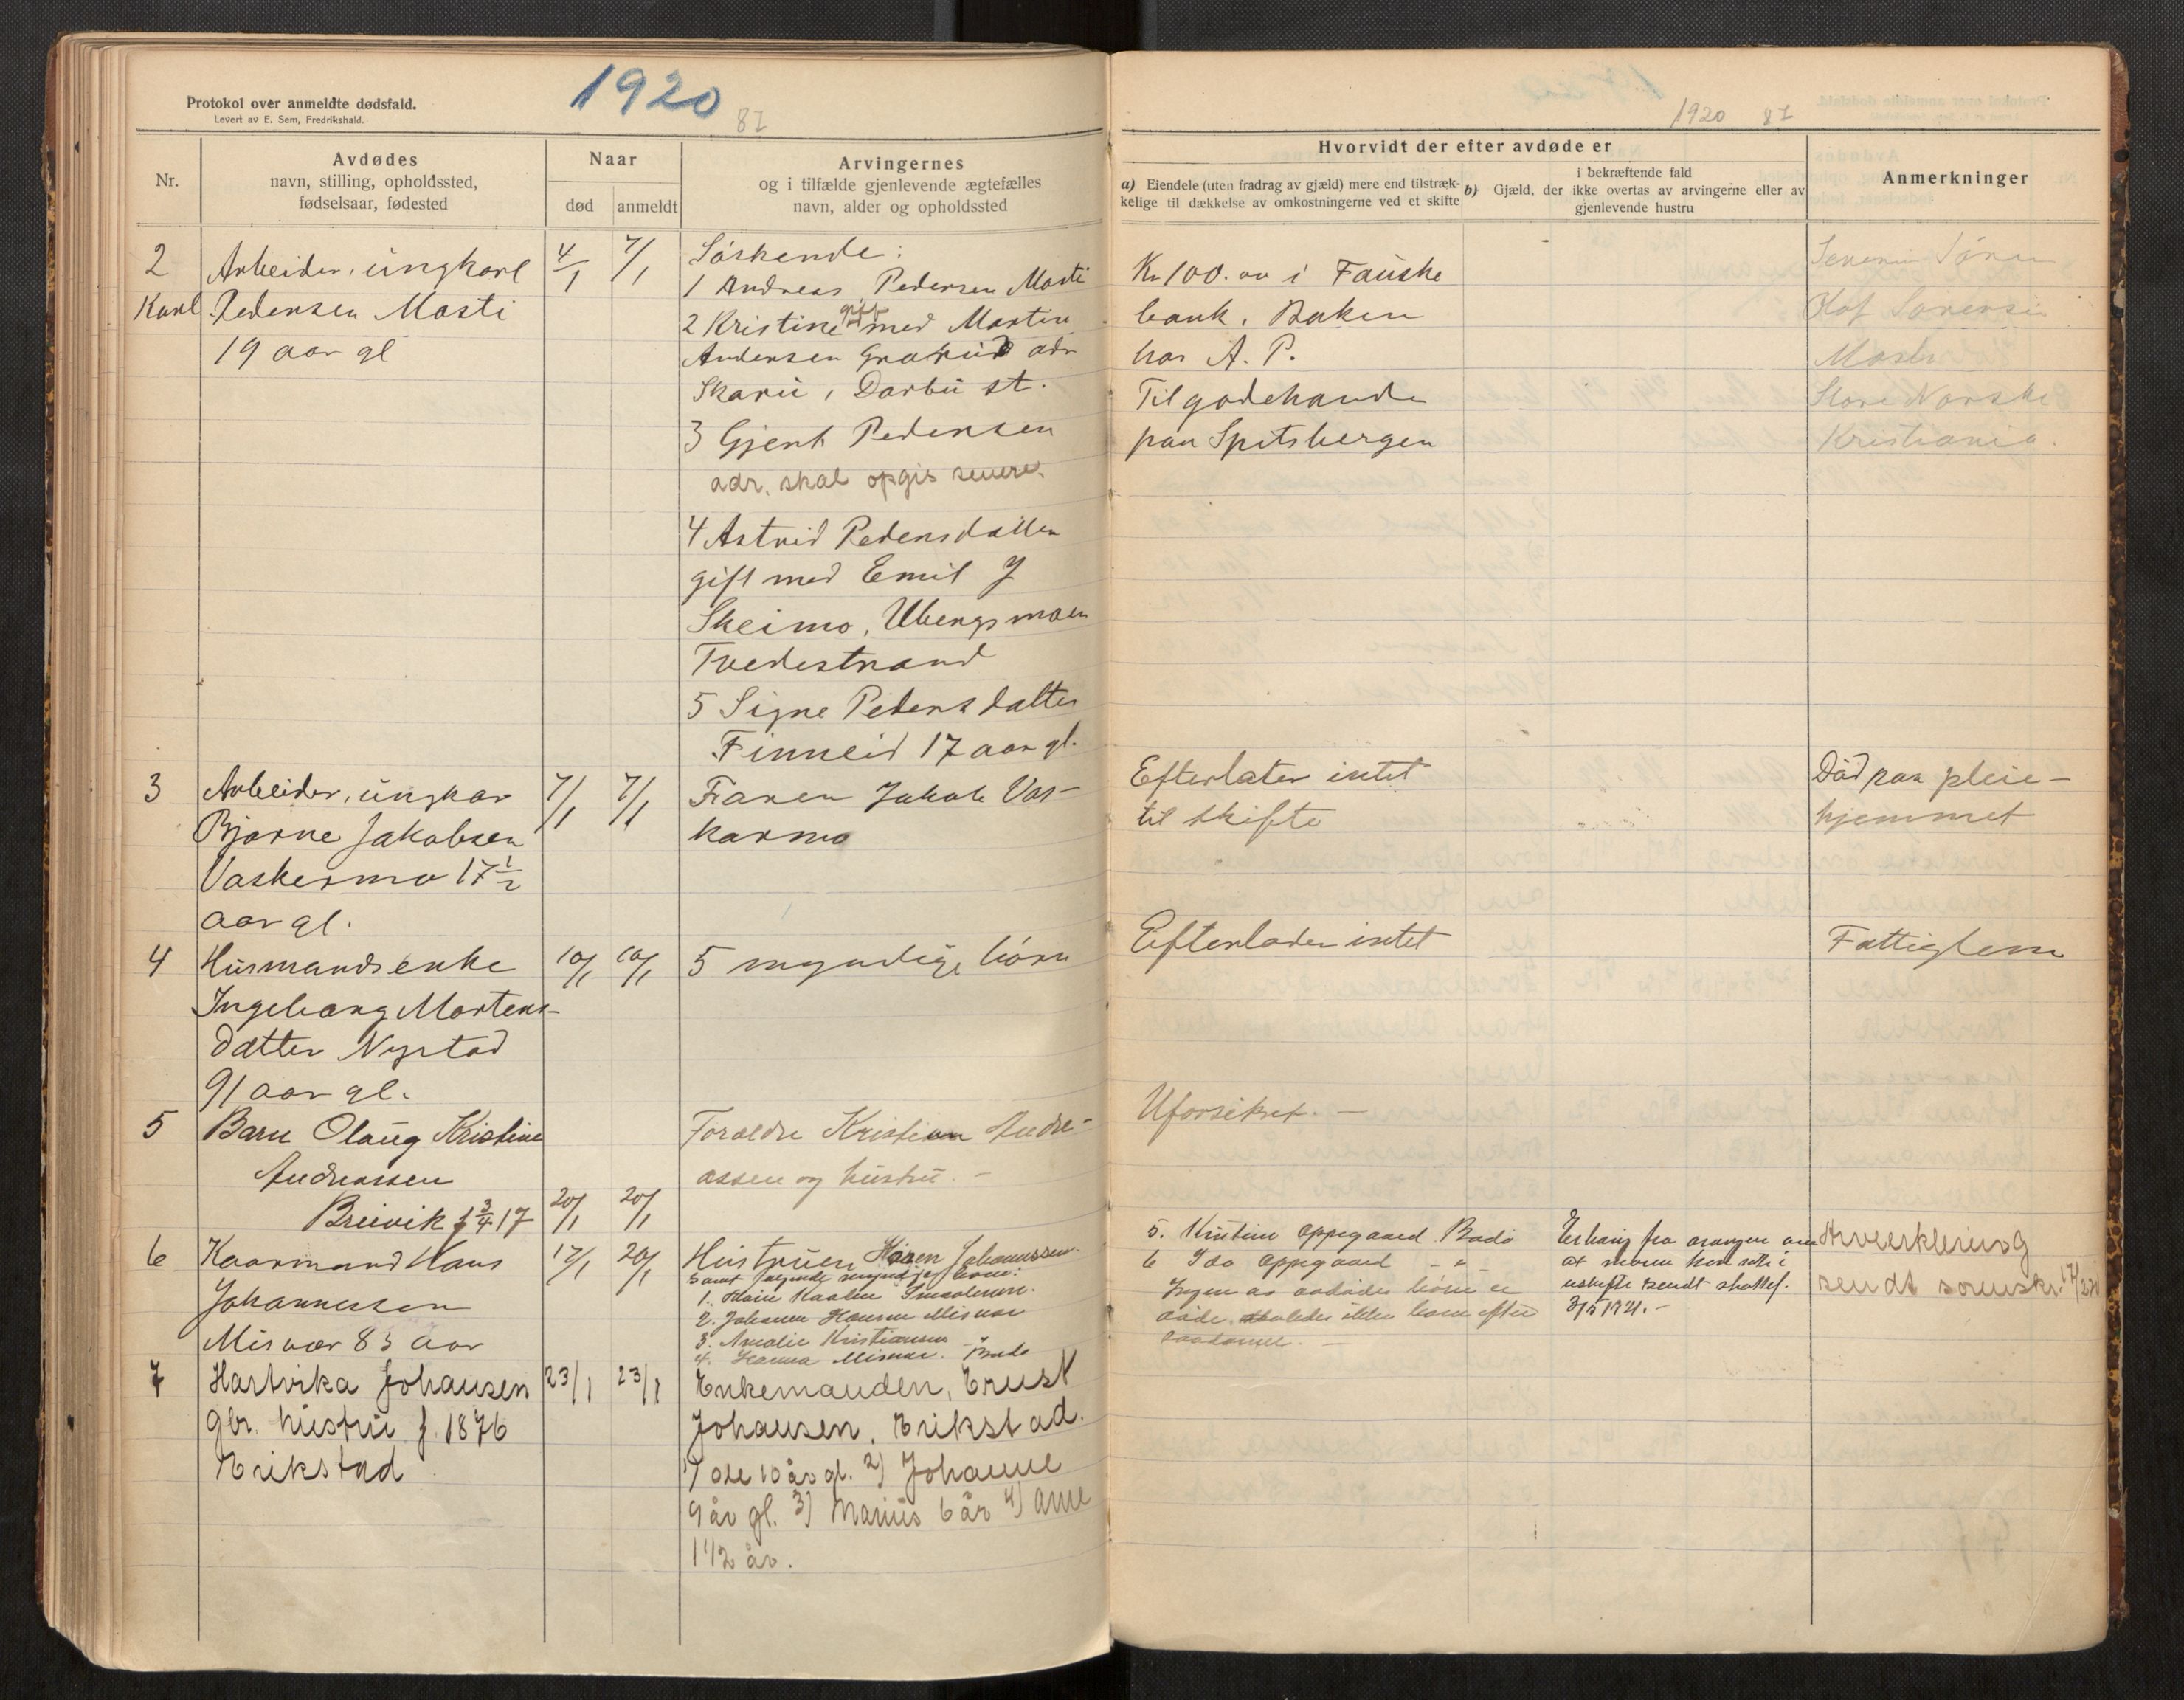 Protokol over anmeldte dødsfald.
Levert av E. Sem, Fredrikshald.
1920
87
Nr.
Avdødes
navn, stilling, opholdssted,
fødselsaar, fødested
Naar
død
anmeldt
Arvingernes
og i tilfælde gjenlevende ægtefælles
navn, alder og opholdssted
2
Arbeider, ungkarl
4/1
7/1
Karl Pedersen Mosti
19 aar gl
Søskende:
1 Andreas Pedersen Mosti
2 Kristine gift med Martin
Andersen adr
Skaru, Darbu st.
3 Gjert Pedersen
adr. skal opgis senere.
4 Astrid Pedersdatter
gift med Emil J
Skeimo, Ubergsmoen
Tvedestrand
5 Signe Pedersdatter
Finneid 17 aar gl.
3
Arbeider, ungkar
7/1
7/1
Bjarne Jakobsen
Vaskermo 17 1/2
aar gl.
Faren Jakob Vas-
karmo
4
Husmandsenke
10/1
10/1
Ingeborg Mortens-
datter Nystad
91 aar gl.
5 myndige børn
5
Barn Olaug Kristine
Andreassen
Breivik f 3/4 17
20/1
20/1
Foreldre Kristian Andre-
assen og hustru. -
6
Kaarmand Hans
17/1
20/1
Johannessen
Misvær 83 aar
Hustruen Johannessen
samt følgende myndige børn:
1.
2. Johannes Hansen Misvær
3. Amalie Kristiansen "
4. Hanna Misvær. Bodø
7
Hartvika Johansen
23/1
23/1
gbr. hustru f. 1876
Erikstad
Enkemanden, Ernst
Johansen, Erikstad.
1) Ole 10 år gl. 2) Johanne
9 år gl. 3) Marius 6 år 4) Arne
1 1/2 år.
1920 87
Hvorvidt der efter avdøde er
a) Eiendele (uten fradrag av gjæld) mere end tilstræk-
kelige til dækkelse av omkostningerne ved et skifte
i bekræftende fald
b) Gjæld, der ikke overtas av arvingerne eller av
gjenlevende hustru
Anmerkninger
Kr 100.00 i Fauske
bank, Boken
hos A. P.
Tilgodehavende
paa Spitsbergen
Olaf Sørensen
Mosti
Store Norske
Kristiania.
Efterlater intet
til skifte
Død paa pleie-
hjemmet
Efterlader intet
Fattiglem
Uforsikret. -
5. Kristine Oppegaard Bodø
6 Ida Oppegaard - " -
Ingen av avdødes børn er
døde, saaledes ikke barn efter
saadanne. -
Erklæring fra arvingene om
at moren kan sitte i
uskifte sendt skattef.
3/5 1921. -
Arveerklæring
sendt sorenskr.